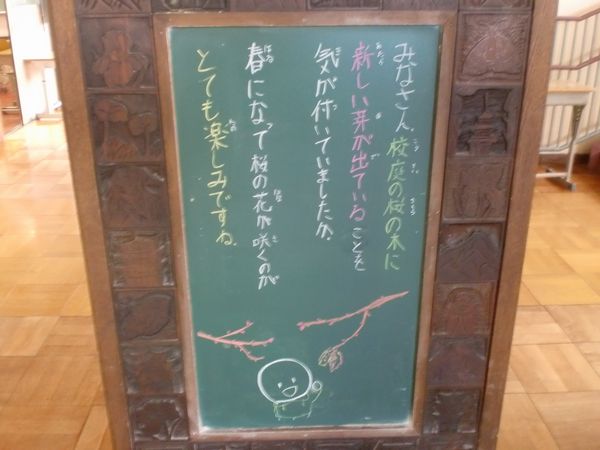 みなさん、校庭の桜の木に
新しい芽が出ていることを
気が付いていましたか。
春になって桜の花が咲くのが
とても楽しみですね。